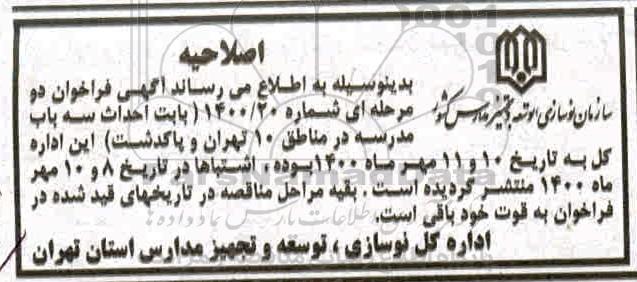 اصلاحیه
سازمان نوسازی، توسعه و تجهیز مدارس کشور
بدینوسیله به اطلاع می رساند آگهی فراخوان دو
مرحله ای شماره ۱۱۴۰۰/۲۰ (بابت احداث سه باب
مدرسه در مناطق ۱۰ تهران و پاکدشت) این اداره
کل به تاریخ ۱۰ و ۱۱ مهر ماه ۱۴۰۰ بوده، اشتباها در تاریخ ۸ و ۱۰ مهر
ماه ۱۴۰۰ منتشر گردیده است. بقیه مراحل مناقصه در تاریخهای قید شده در
فراخوان به قوت خود باقی است.
اداره کل نوسازی، توسعه و تجهیز مدارس استان تهران